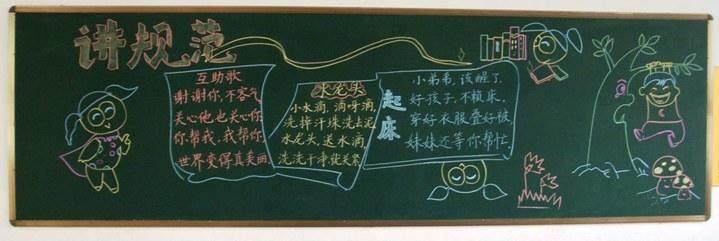 讲规范
互助歌
谢谢你,不客气
关心他也关心你
你帮我,我帮你
世界变得真美丽.
水龙头
小水滴,滴呀滴,
洗掉汗珠洗去泥
水龙头,送水滴,
洗洗干净使关紧
起床
小弟弟,该醒了,
好孩子,不赖床,
穿好衣服叠好被
妹妹还等你帮忙.